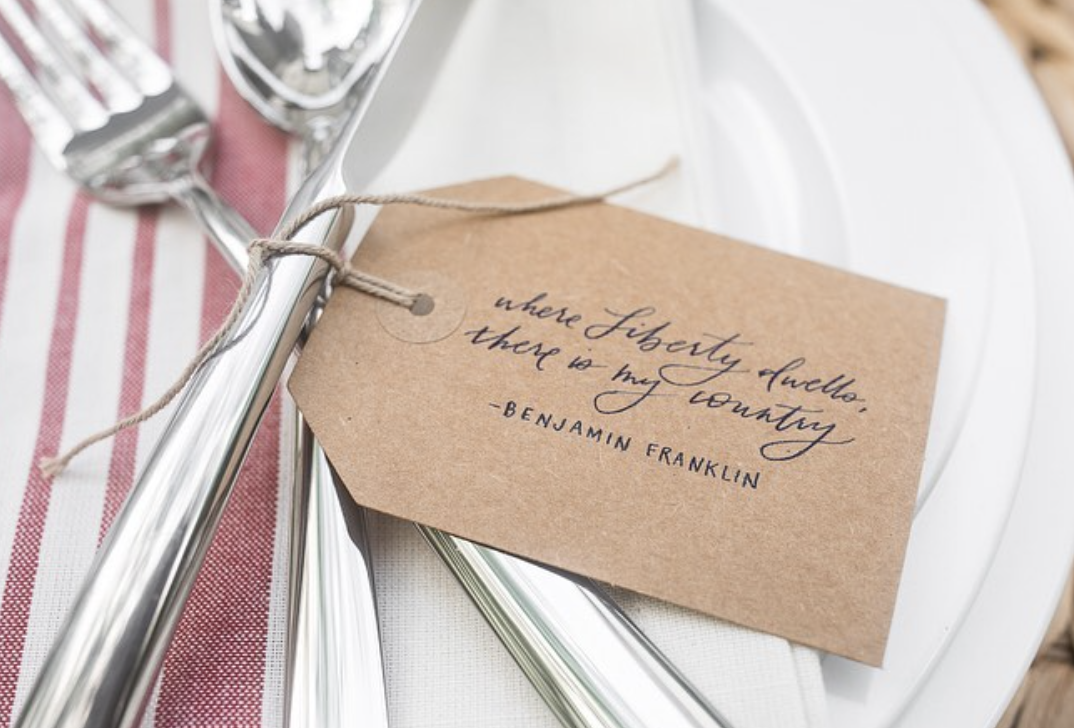 where Liberty dwells,
there is my country
-BENJAMIN FRANKLIN